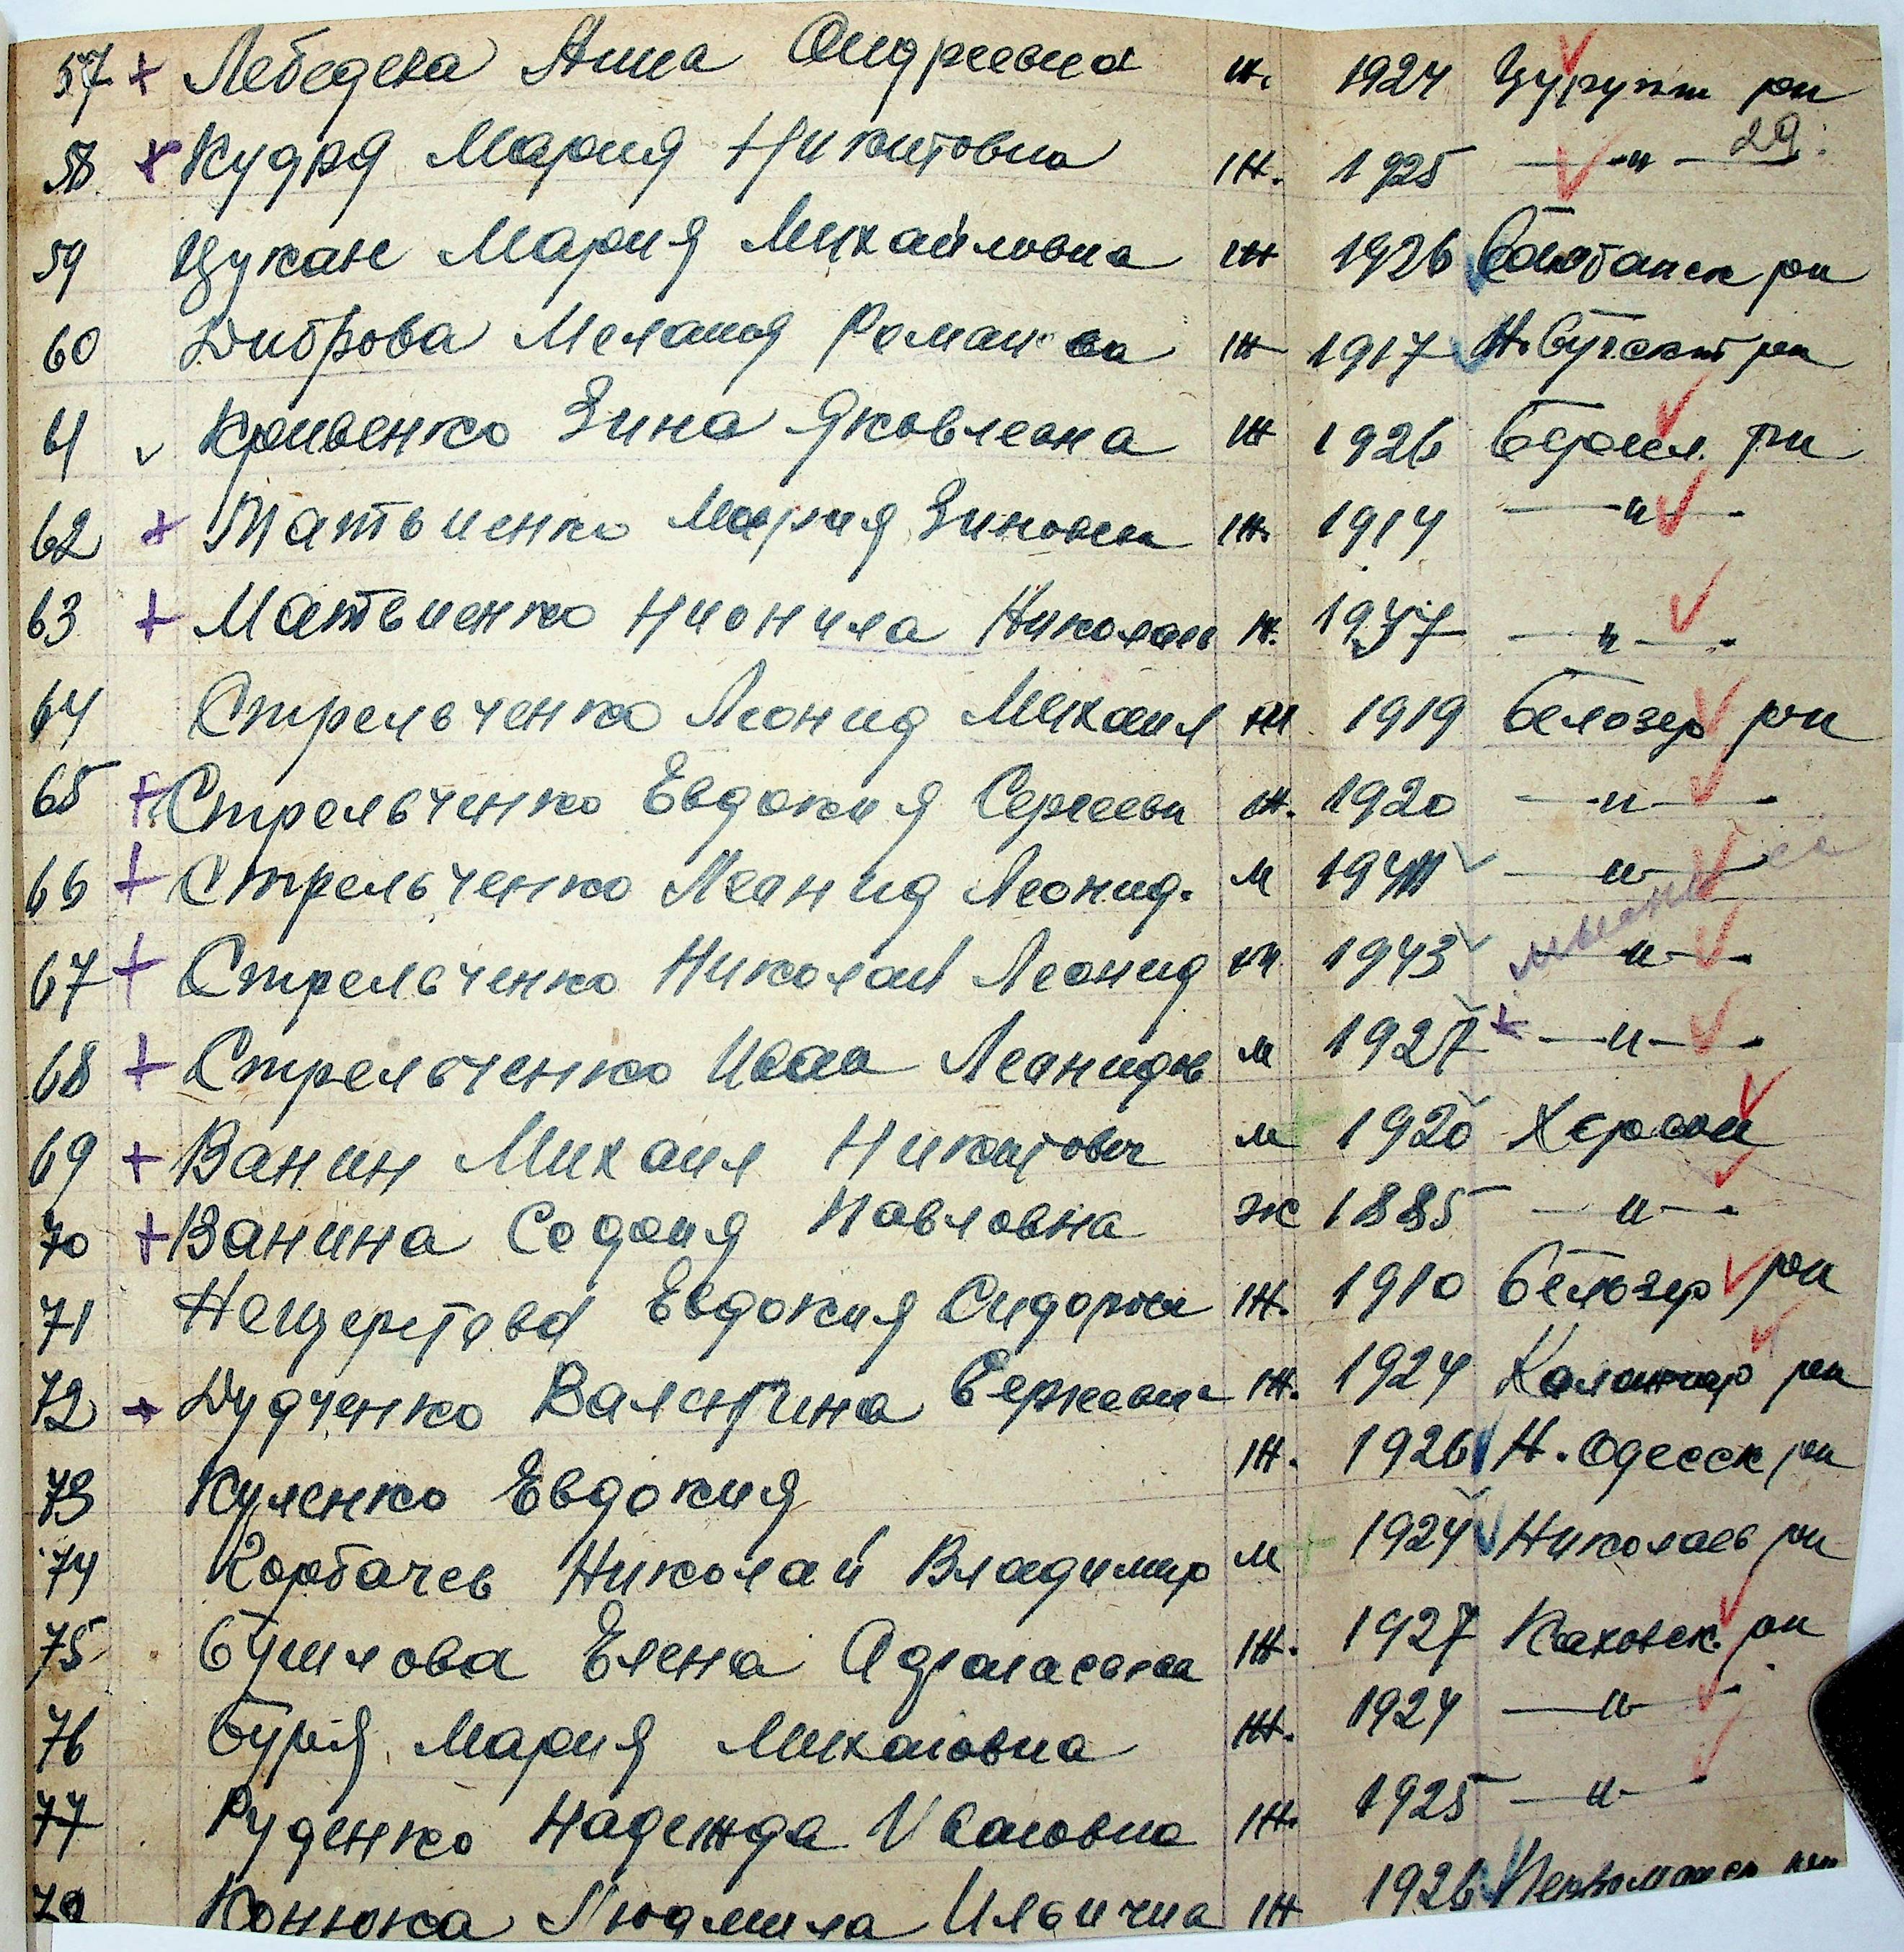 57 + Лебедева Анна Андреевна ж. 1924 Цурупин рн
29.
58 + Кудря Мария Никитовна ж. 1925 —"—
59 Цукан Мария Михайловна ж 1926 рн
60 Диброва Мелания Роман ж 1917 Н. Бугский рн
61 v Кривенко Зина Яковлевна ж 1926 Берисл. рн
62 + Матвиенко Мария Зиновеи ж. 1914 —"—
63 + Матвиенко Нионила Николаев ж. —"—
64 Стрельченко Леонид Михаил м 1919 Белозер рн
65 + Стрельченко Евдокия Сергеевн ж. 1920 —"—
66 + Стрельченко Леонид Леонид. м —"—
67 + Стрельченко Николай Леонид м 1943 —"—
68 + Стрельченко Иван Леонидов м 1927 + —"—
69 + Ванин Михаил Никитович м 1920 Херсон
70 + Ванина Павловна ж 1885 —"—
71 Евдокия Сидоров ж. 1910 Белозер рн
72 + Дудченко Валентина Сергеевна ж. 1924 Каланчар рн
73 Куленко Евдокия ж. 1926 Н. Одесск рн
74 Корбачев Николай Владимир м 1924 Николаев рн
75 Бушлова Елена ж. 1927 Каховск. рн
76 Буря Мария Михайловна ж. 1924 —"—
77 Руденко Надежда Ивановна ж. 1925 —"—
78 Конюка Людмила Ильична ж 1926 Первомайск рн